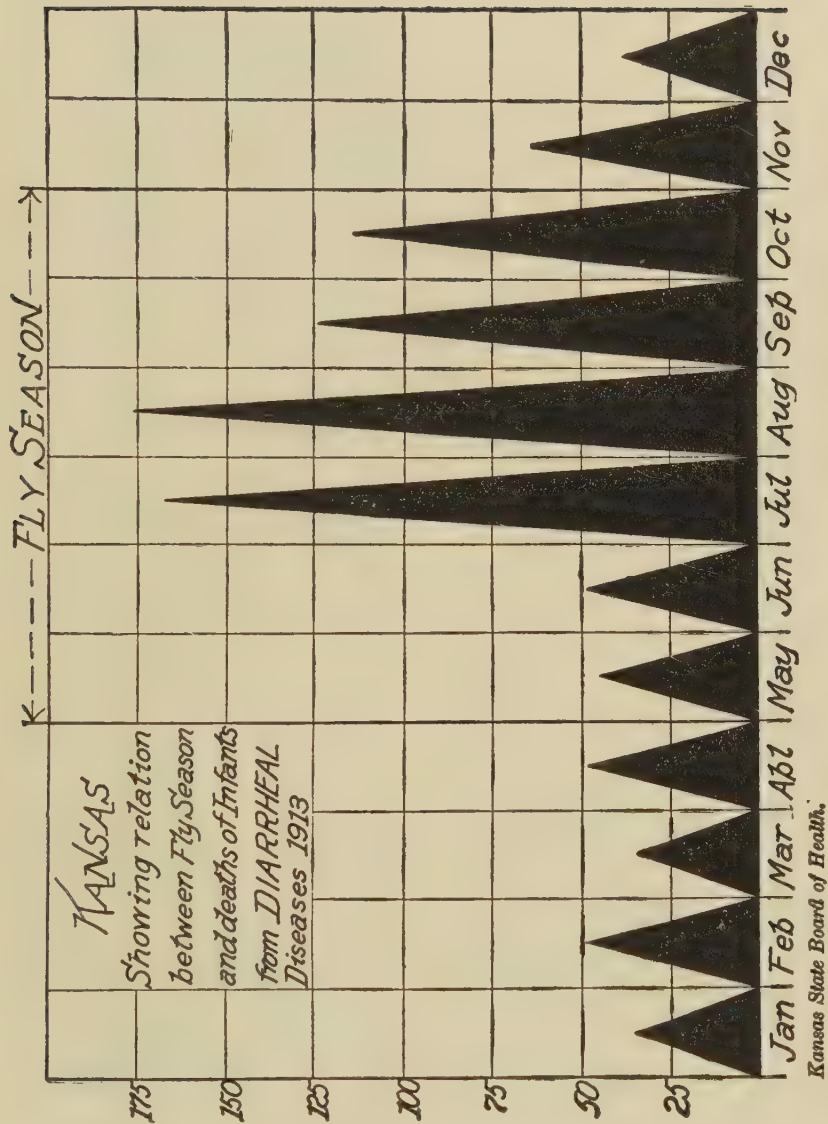 FLY SEASON
KANSAS
Showing relation
between Fly Season
and deaths of Infants
from DIARRHEAL
Diseases 1913
175
150
125
100
75
50
25
Jan Feb Mar Apl May Jun Jul Aug Sep Oct Nov Dec
Kansas State Board of Health.